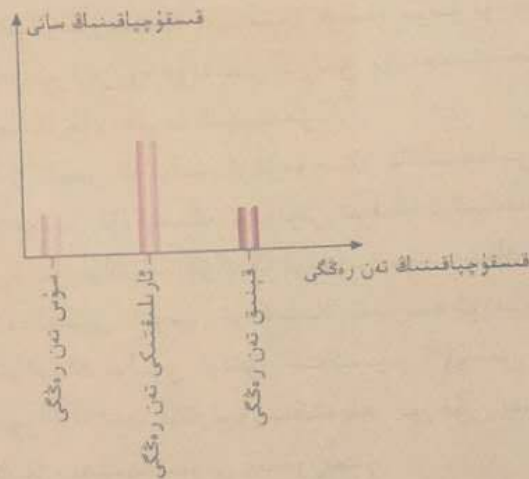 قىسقۇچپاقىنىڭ سانى
قىسقۇچپاقىنىڭ تەن رەڭگى
سۇس تەن رەڭگى
ئارىلىقتىكى تەن رەڭگى
قېنىق تەن رەڭگى